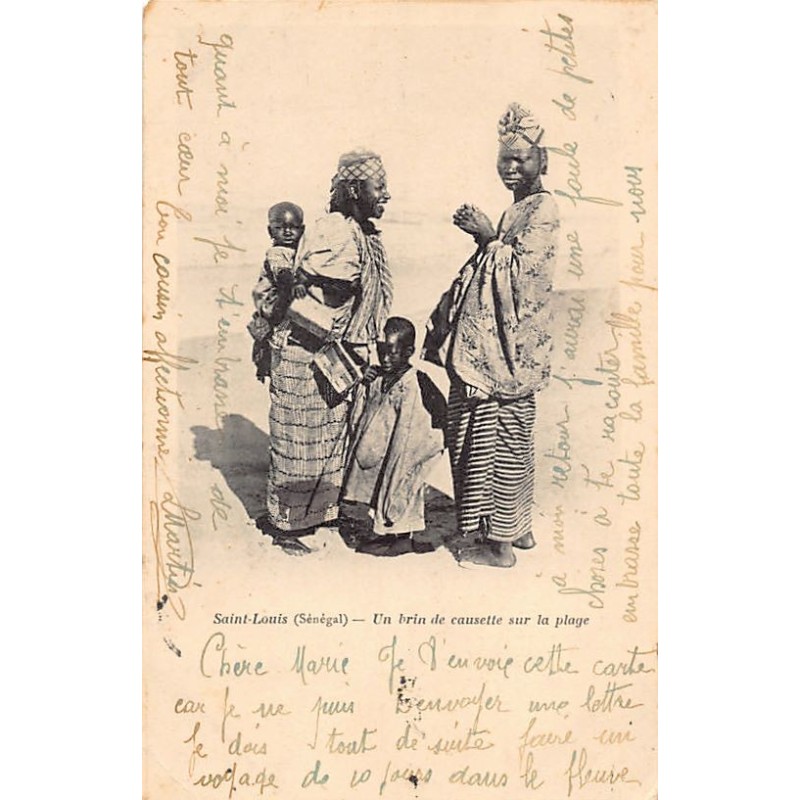 Saint-Louis (Sénégal) — Un brin de causette sur la plage
Chère Marie Je t'envoie cette carte
car je ne puis t'envoyer une lettre
Je dois tout de suite faire un
voyage de 10 jours dans le fleuve
à mon retour j'aurai une foule de petites
choses à te raconter
embrasse toute la famille pour nous
quant à moi je t'embrasse de
tout cœur ton cousin affectionné